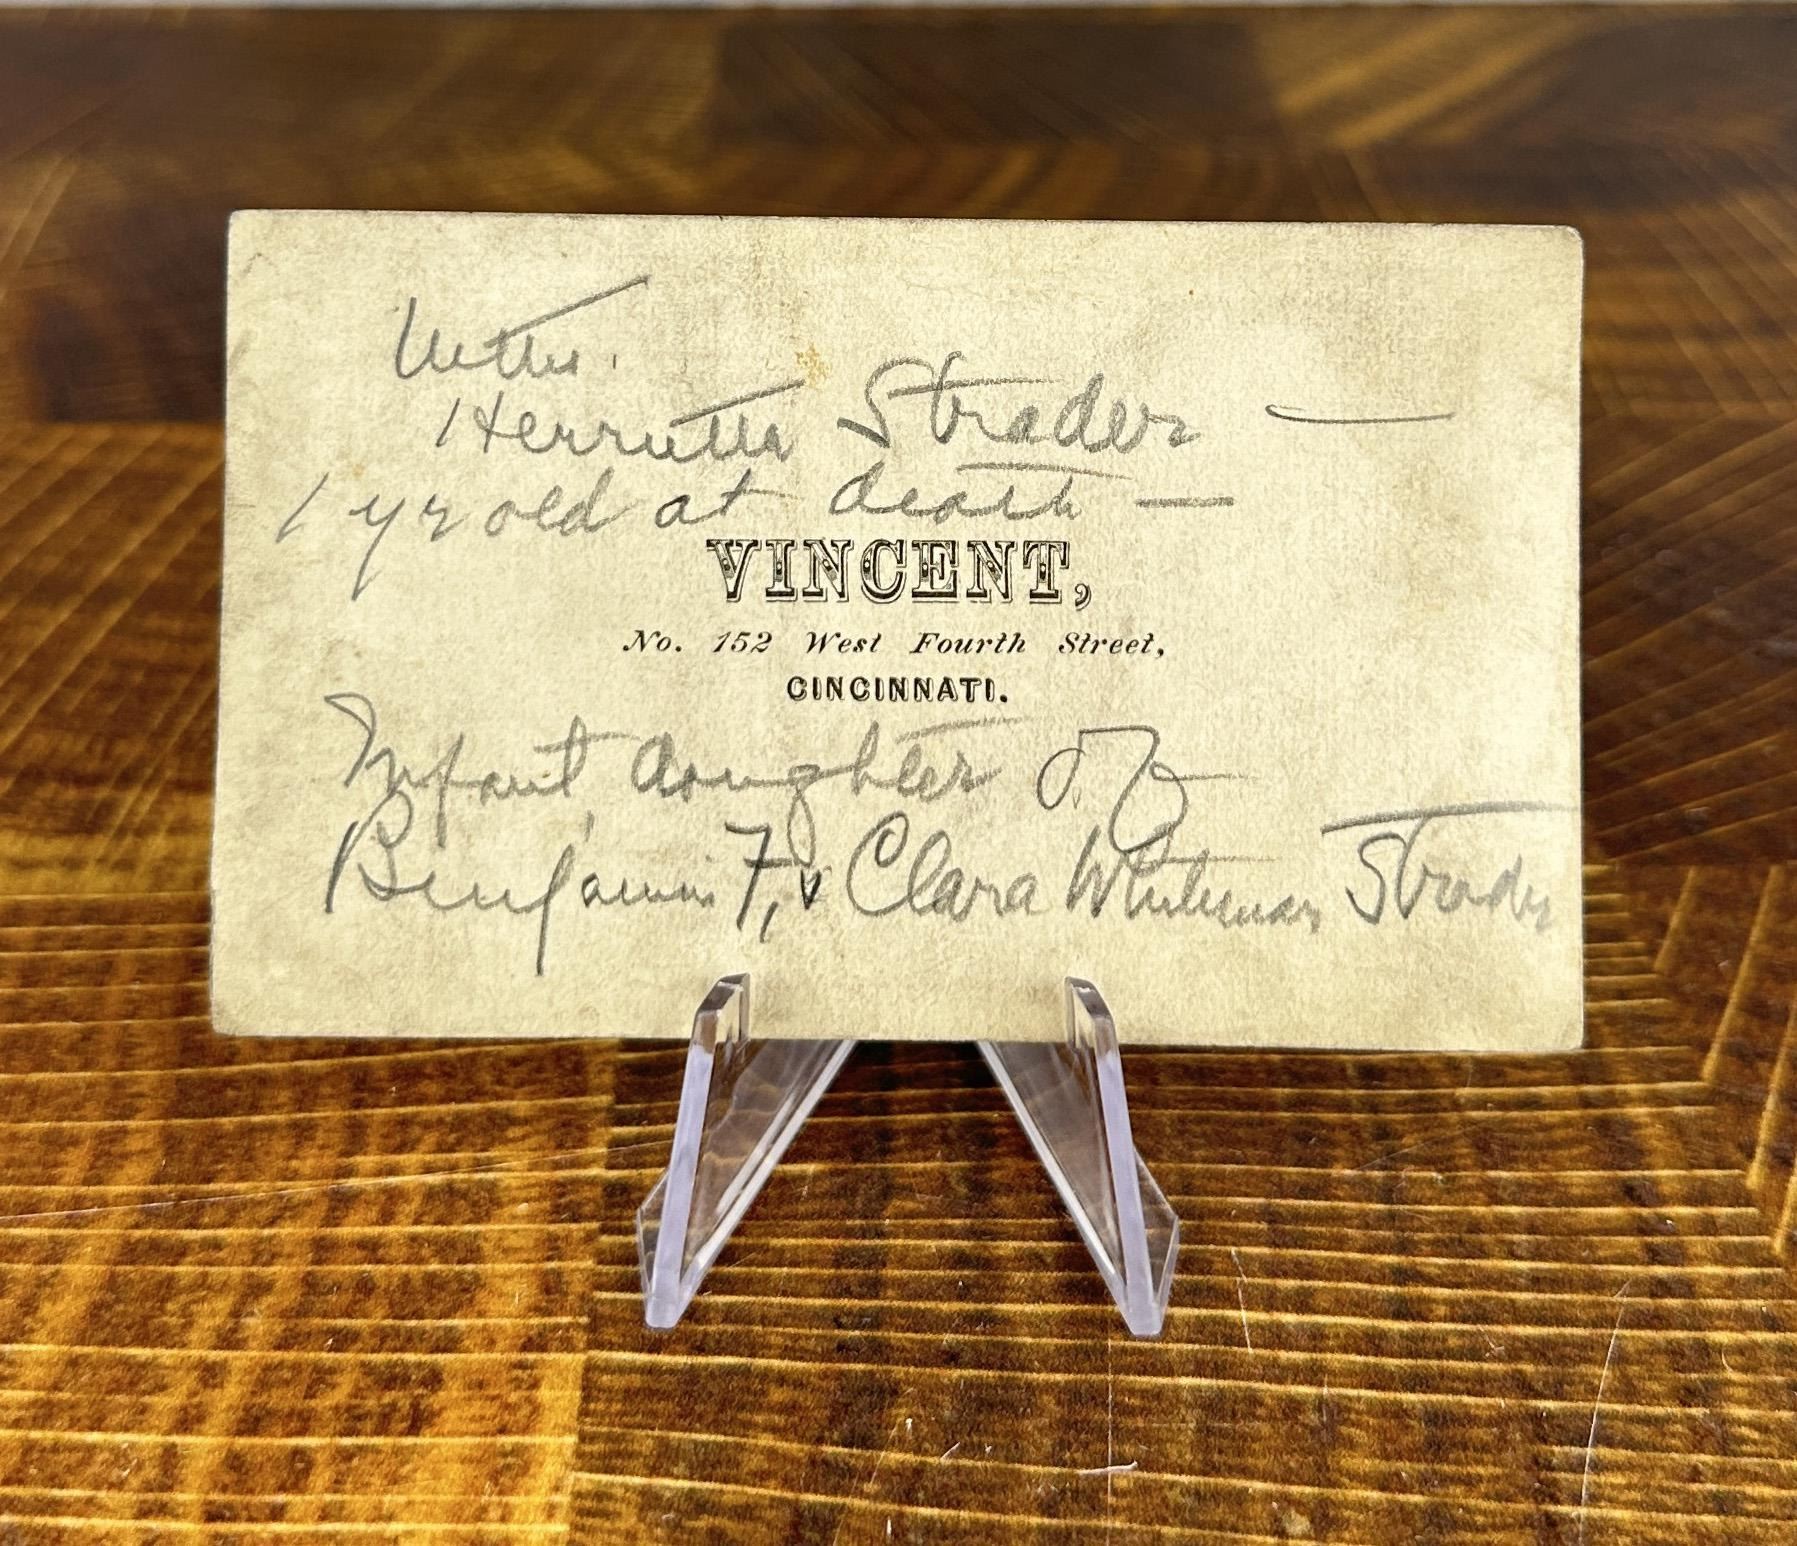 Strader —
1 yr old at death —
VINCENT,
No. 152 West Fourth Street,
CINCINNATI.
Infant daughter of
Benjamin F, & Clara Whiteman Strader